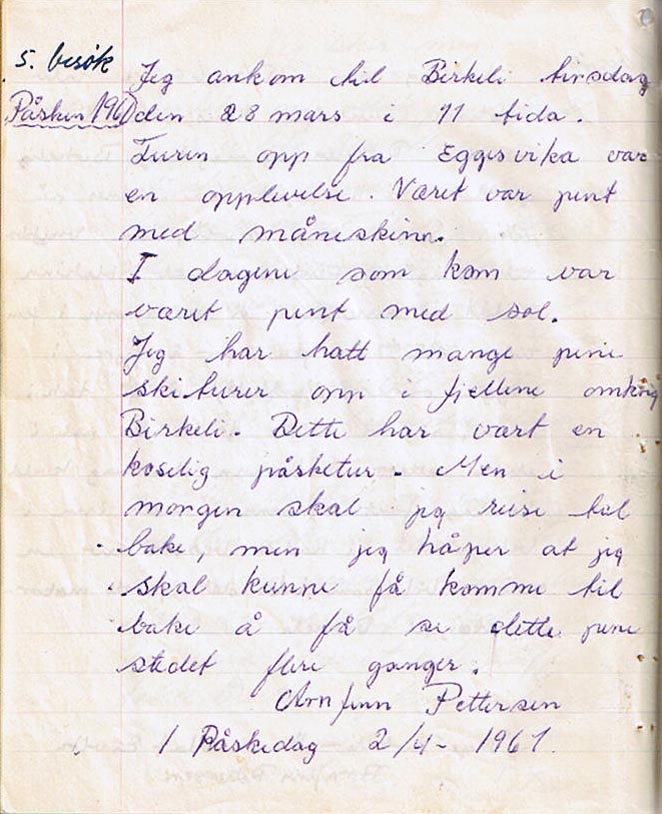 5. besøk
Påsken 196
Jeg ankom til Birkeli tirsdag
den 28 mars i 11 tida.
Turen opp fra Eggesvika var
en opplevelse. Været var pent
med måneskinn.
I dagene som kom var
været pent med sol.
Jeg har hatt mange pene
skiturer opp i fjellene omkrig
Birkeli. Dette har vært en
koselig påsketur. Men i
morgen skal jeg reise til
bake, men jeg håper at jeg
skal kunne få komme til
bake å få se dette pene
stedet flere ganger.
Arnfinn Pettersen
1 Påskedag 2/4- 1961.